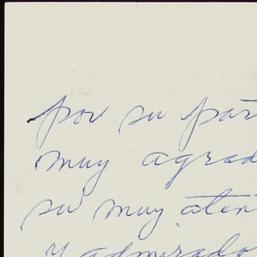 por su par
muy agrad
su muy aten
y admirado